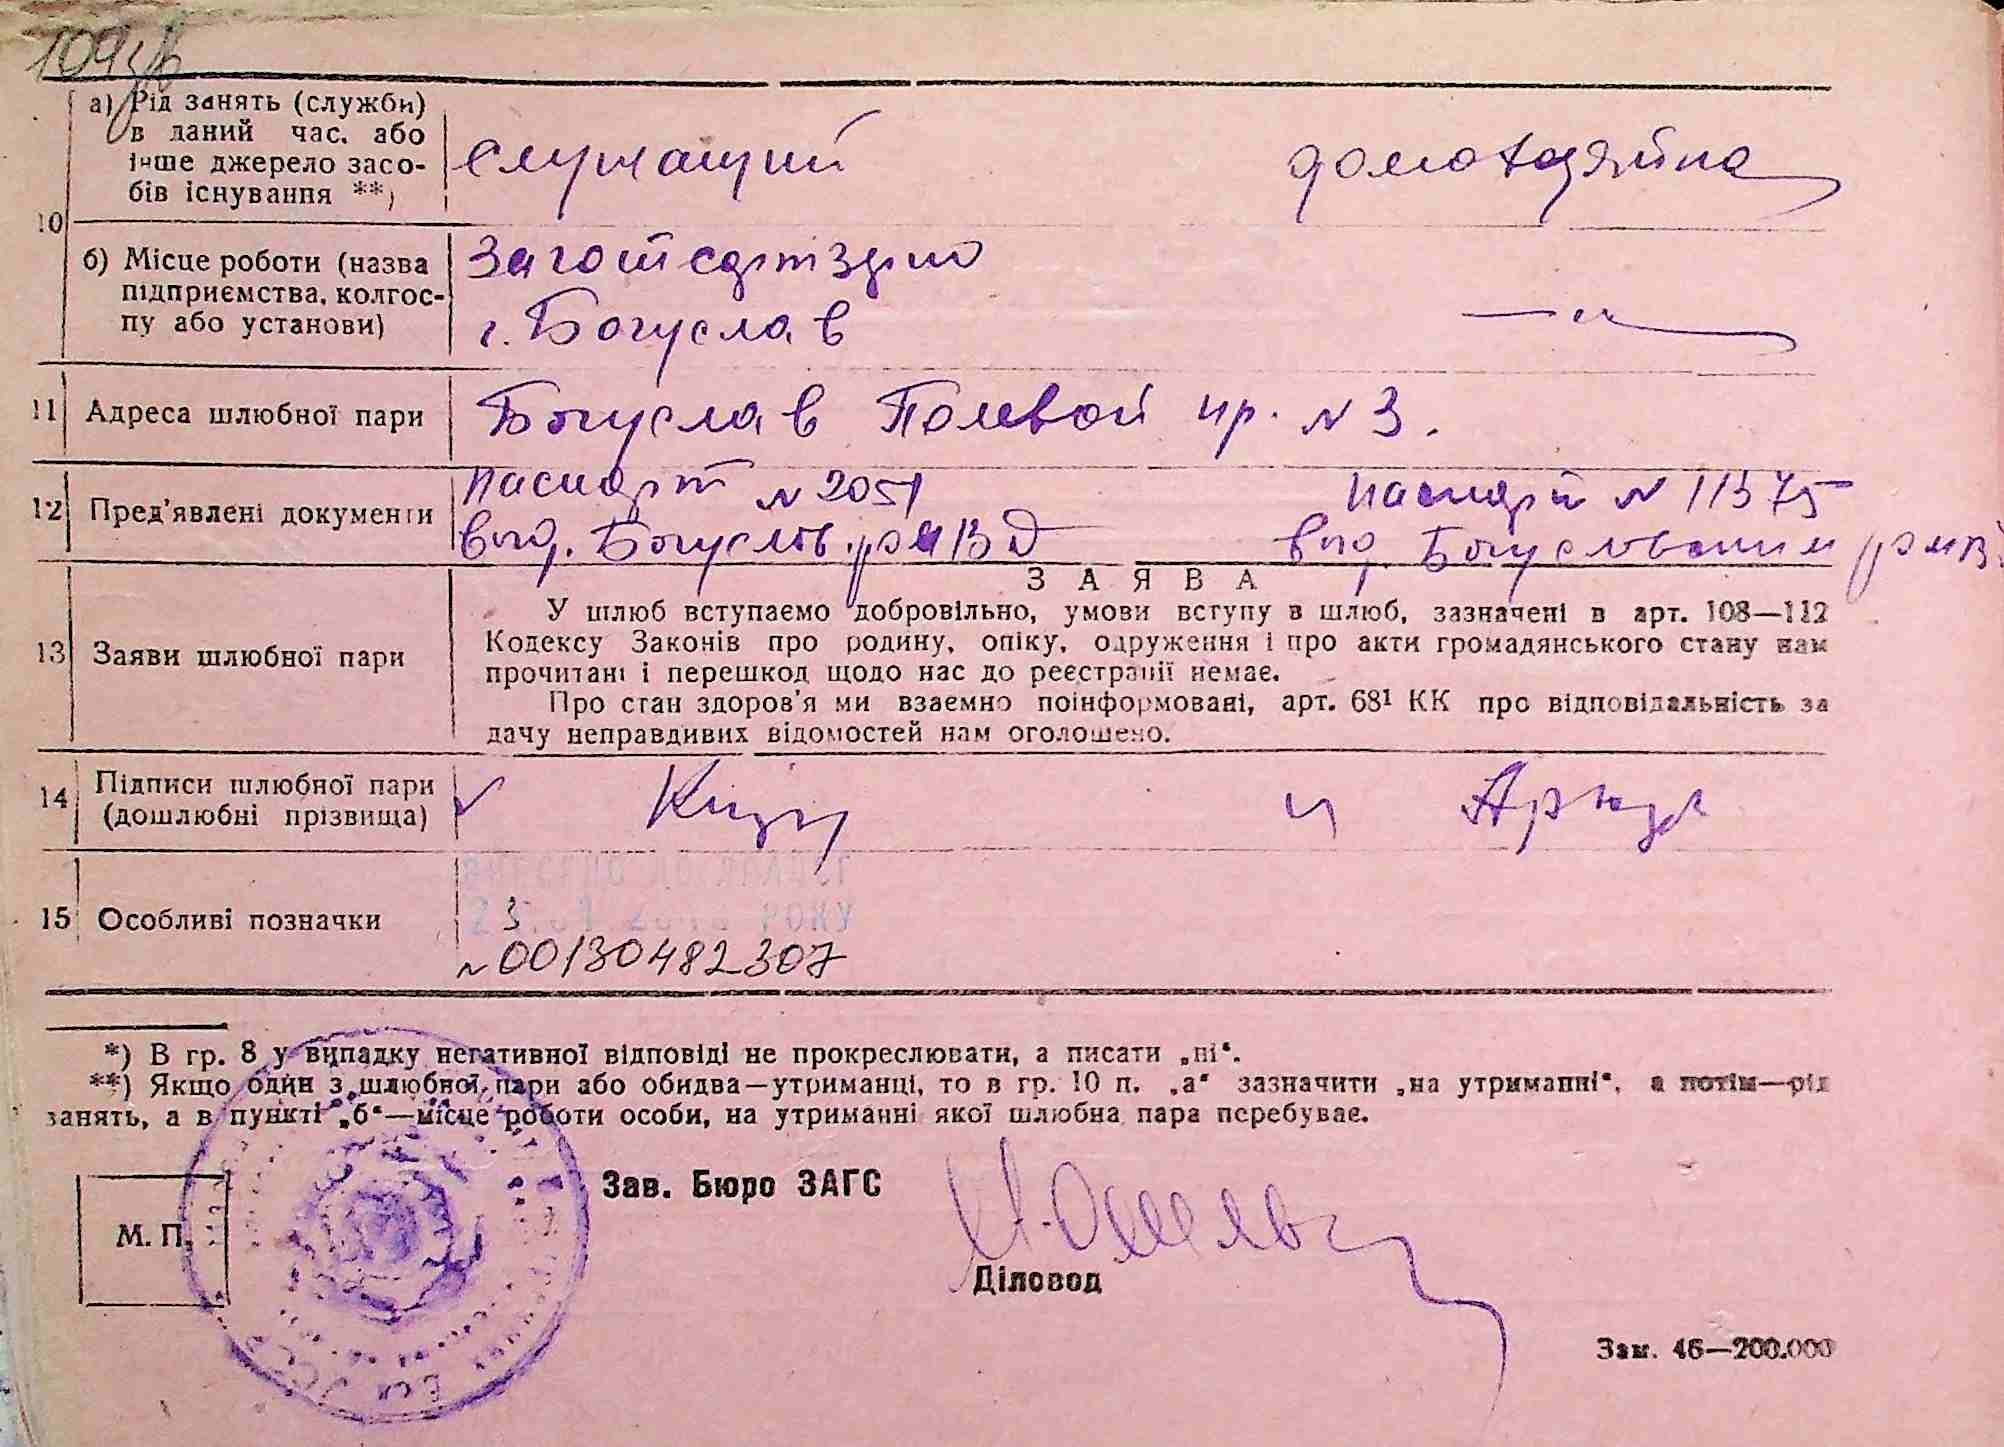 109зв
а) Рід занять (служби)
в даний час, або
інше джерело засо-
бів існування **)
служащий домохазяйка
10
б) Місце роботи (назва
підприємства, колгос-
пу або установи)
г. Богуслав
11 Адреса шлюбної пари Богуслав Полевой пр. N 3.
12 Пред'явлені документи
Паспорт N 2051 Паспорт N 11575
выд. Богуслав. РОМВД выд. Богуславским РОМВД
ЗАЯВА
13 Заяви шлюбної пари
У шлюб вступаємо добровільно, умови вступу в шлюб, зазначені в арт. 108—112
Кодексу Законів про родину, опіку, одруження і про акти громадянського стану нам
прочитані і перешкод щодо нас до реєстрації немає.
Про стан здоров'я ми взаємно поінформовані, арт. 68¹ КК про відповідальність за
дачу неправдивих відомостей нам оголошено.
14 Підписи шлюбної пари
(дошлюбні прізвища)
15 Особливі позначки
РОКУ
N 00130482307
*) В гр. 8 у випадку негативної відповіді не прокреслювати, а писати „ні“.
**) Якщо один з шлюбної пари або обидва—утриманці, то в гр. 10 п. „а“ зазначити „на утриманні“, а потім—рід
занять, а в пункті „б“—місце роботи особи, на утриманні якої шлюбна пара перебуває.
Зав. Бюро ЗАГС
М. П.
Діловод
Зам. 46—200.000